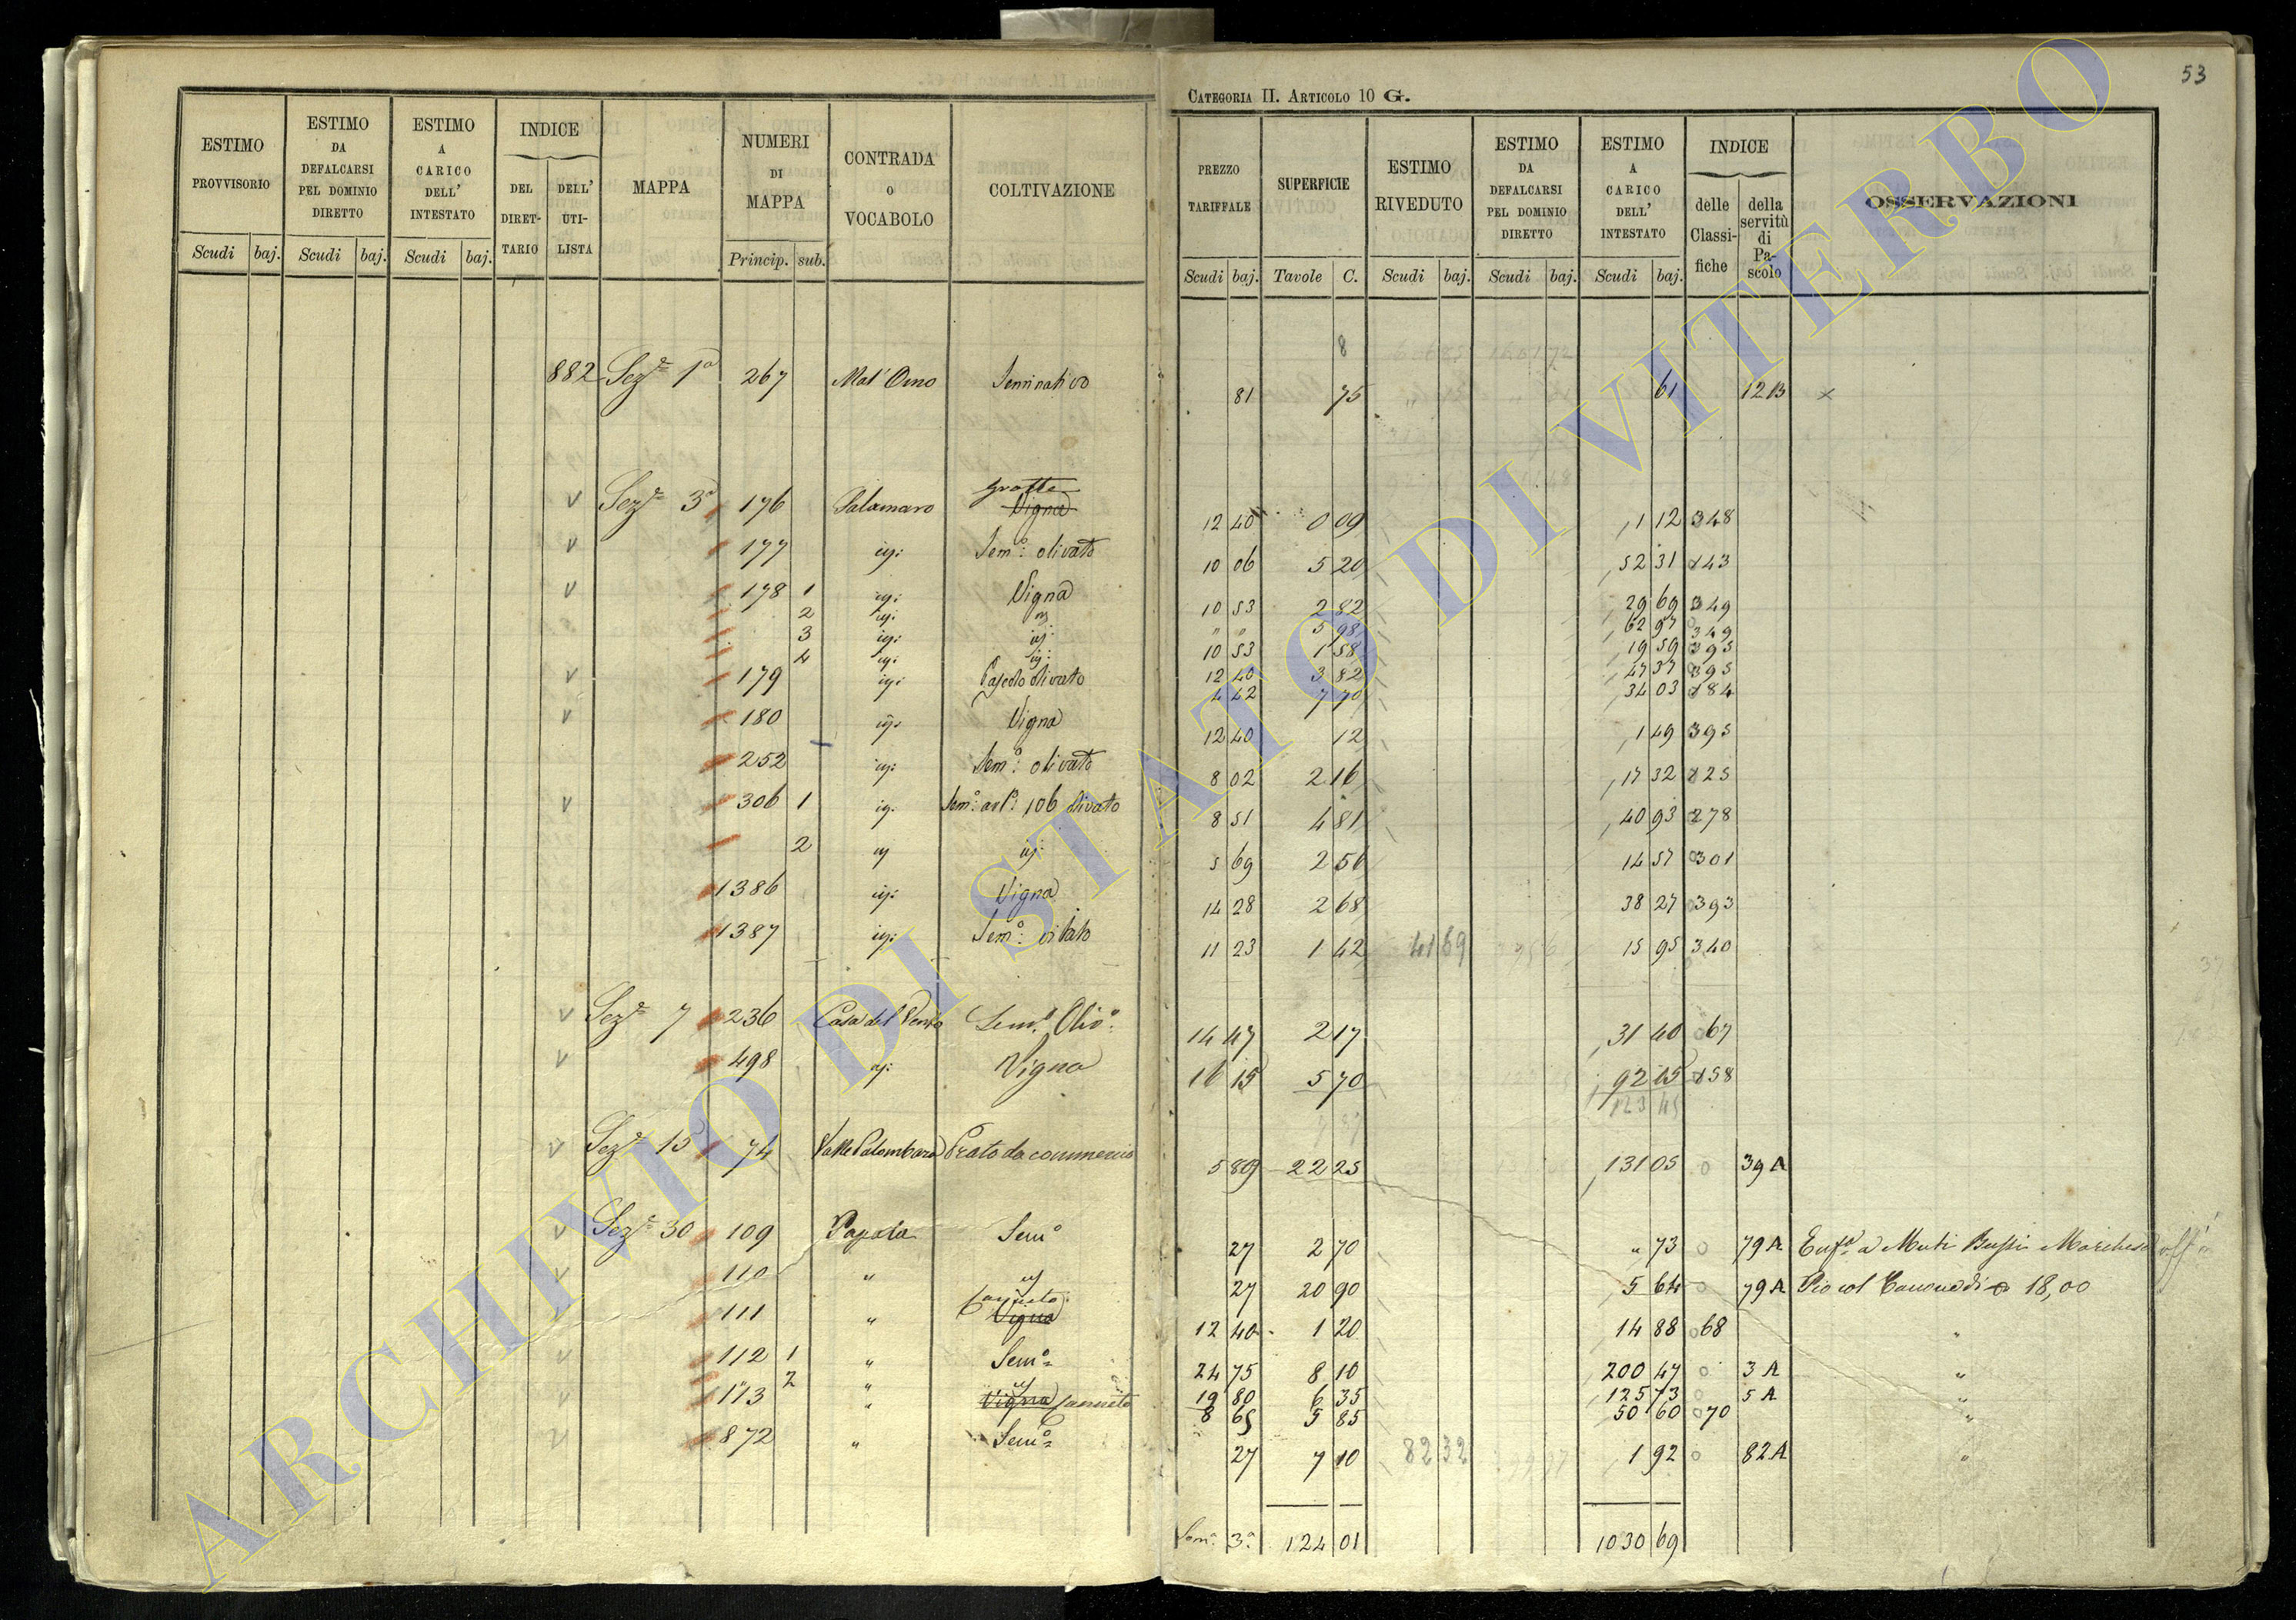 53
CATEGORIA II. ARTICOLO 10 G.
ESTIMO PROVVISORIO Scudi baj.
ESTIMO DA DEFALCARSI PEL DOMINIO DIRETTO Scudi baj.
ESTIMO A CARICO DELL' INTESTATO Scudi baj.
INDICE DEL DIRETTARIO DELL' UTILISTA
MAPPA
NUMERI DI MAPPA Princip. sub.
CONTRADA o VOCABOLO
COLTIVAZIONE
PREZZO TARIFFALE Scudi baj.
SUPERFICIE Tavole C.
ESTIMO RIVEDUTO Scudi baj.
ESTIMO DA DEFALCARSI PEL DOMINIO DIRETTO Scudi baj.
ESTIMO A CARICO DELL' INTESTATO Scudi baj.
INDICE delle Classifiche della servitù di Pascolo
OSSERVAZIONI
882 Sez.e 1a 267 Mal'Omo Seminativo 81 75 61 12 B x
V Sez.e 3a 176 Palamaro grotte Vigna 12 40 0 09 1 12 348
V 177 ig: Sem.o: olivato 10 06 5 20 52 31 143
V 178 1 ig: Vigna 10 53 2 82 29 69 349
2 ig: ig " " 5 98 62 97 349
3 ig: ig: 10 53 1 58 19 59 395
4 ig: ig: 12 40 3 82 47 37 395
V 179 ig: Pascolo olivato 4 42 7 70 34 03 184
V 180 ig: Vigna 12 40 12 1 49 395
252 ig: Sem.o: olivato 8 02 2 16 17 32 125
V 306 1 ig. Sem.o: arb.o: 106 olivato 8 51 4 81 40 93 278
2 ig ig: 5 69 2 56 14 57 301
1386 ig: Vigna 14 28 2 68 38 27 393
1387 ig: Sem.o: vitato 11 23 1 42 41 69 15 95 340
V Sez.e 7 236 Casa del Vento Sem.o Oliv.o: 14 47 2 17 31 40 67
V 498 ig: Vigna 16 15 5 70 92 15 158
123 45
V Sez.e 15 74 Valle Palombara Prato da commercio 5 89 22 25 131 05 39 A
V Sez.e 30 109 Papala Sem.o 27 2 70 " 73 79 A Enf.a a Muti Bussi Marchese
V 110 " ig 27 20 90 5 64 79 A Pio col Canone di 18,00
111 " Canneto Vigna 12 40 1 20 14 88 68 "
V 112 1 " Sem.o 24 75 8 10 200 47 3 A "
2 " ig 19 80 6 35 125 73 5 A "
V 113 " Vigna Canneto 8 65 5 85 50 60 70 "
V 872 " Sem.o 27 7 10 82 32 1 92 82 A "
Som.a 3a 124 01 1030 69
ARCHIVIO DI STATO DI VITERBO